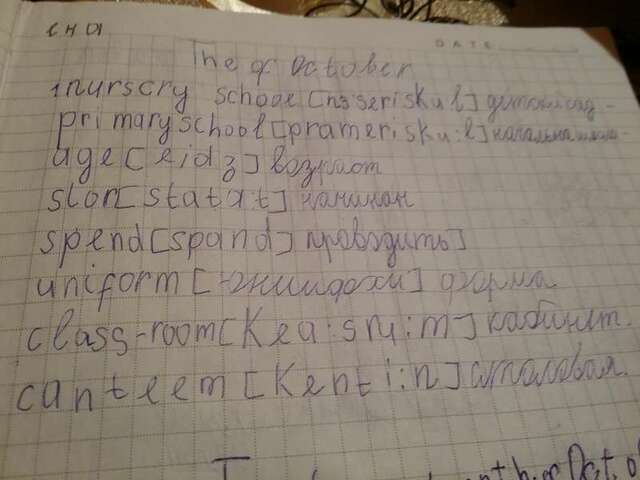 DATE
The of October
nurscry school [nɜ:seriskul] детский сад -
primary school [pramerisku:l] начальна школа
age [eidʒ] возраст
stor [statat] начинан
spend [spand] проводить]
uniform [юнифохм] форма
class-room [Kea:sru:m] кабинет.
canteem [Kenti:n] столовая.